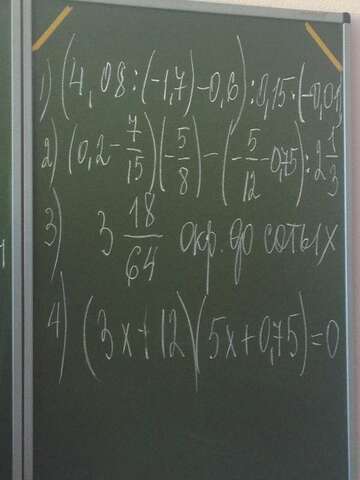 1) (4,08:(-1,7)-0,6):0,15·(-0,01)
2) (0,2-7/15)(-5/8)-(-5/12-0,75):2 1/3
3) 3 18/64 окр. до сотых
4) (3x+12)(5x+0,75)=0